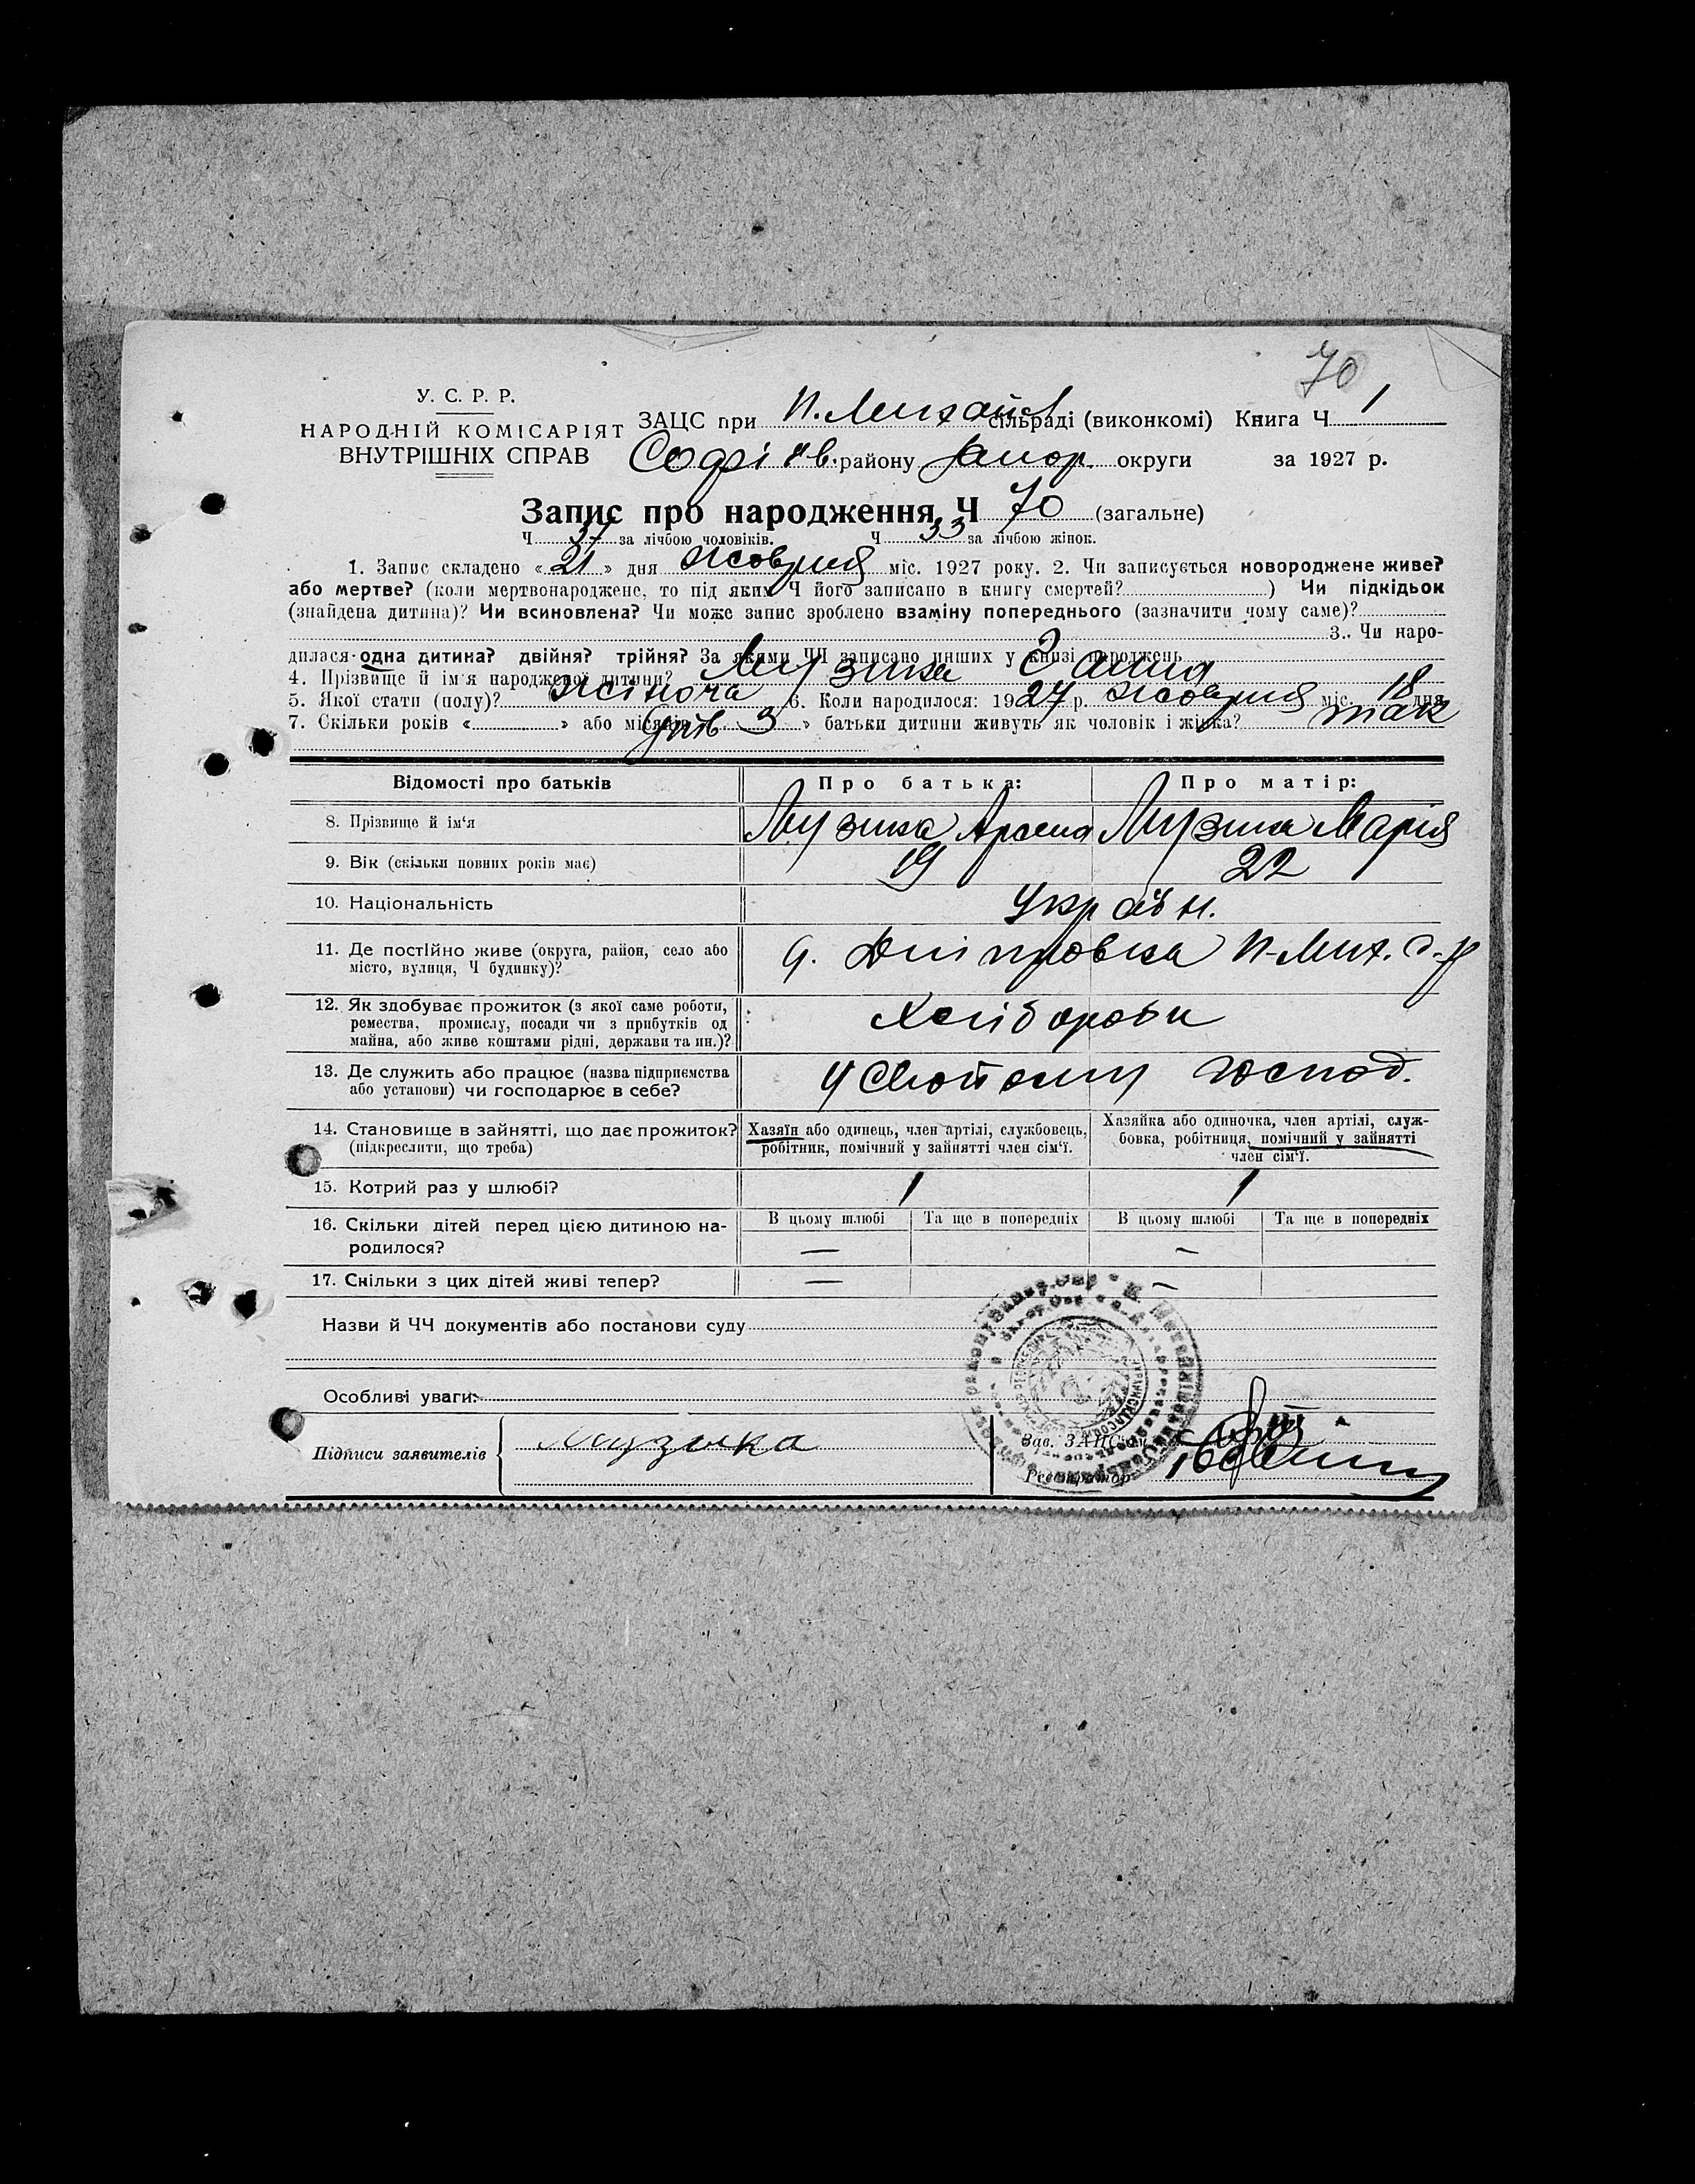 70
У. С. Р. Р.
НАРОДНІЙ КОМІСАРІЯТ
ВНУТРІШНІХ СПРАВ
ЗАЦС при Н. Михайл сільраді (виконкомі) Книга Ч 1
Софіїв. району Запор. округи за 1927 р.
Запис про народження Ч 70 (загальне)
Ч 37 за лічбою чоловіків. Ч 33 за лічбою жінок.
1. Запис складено «21» дня жовтня міс. 1927 року. 2. Чи записується новороджене живе?
або мертве? (коли мертвонароджене, то під яким Ч його записано в книгу смертей? ) Чи підкідьок
(знайдена дитина)? Чи всиновлена? Чи може запис зроблено взаміну попереднього (зазначити чому саме)?
3. Чи наро-
дилася одна дитина? двійня? трійня? За якими ЧЧ записано инших у книзі народжень
4. Прізвище й ім'я народженої дитини? Музика Ганна
5. Якої стати (полу)? жіноча 6. Коли народилося: 1927 р. жовтня міс. 18 дня
7. Скільки років « » або місяців 3 » батьки дитини живуть як чоловік і жінка? так
Відомості про батьків Про батька: Про матір:
8. Прізвище й ім'я Музика Арсент Музика Марія
9. Вік (скільки повних років має) 19 22
10. Національність Україн.
11. Де постійно живе (округа, район, село або
місто, вулиця, Ч будинку)? Дніпровка Н-Мих. с-р
12. Як здобуває прожиток (з якої саме роботи,
ремества, промислу, посади чи з прибутків од
майна, або живе коштами рідні, держави та ин.)? Хлібороби
13. Де служить або працює (назва підприємства
або установи) чи господарює в себе? У свойому господ.
14. Становище в зайнятті, що дає прожиток?
(підкреслити, що треба)
Хазяїн або одинець, член артілі, службовець,
робітник, помічний у зайнятті член сім'ї.
Хазяйка або одиночка, член артілі, служ-
бовка, робітниця, помічний у зайнятті
член сім'ї.
15. Котрий раз у шлюбі? 1 1
16. Скільки дітей перед цією дитиною на-
родилося?
В цьому шлюбі Та ще в попередніх В цьому шлюбі Та ще в попередніх
— —
17. Скільки з цих дітей живі тепер? — —
Назви й ЧЧ документів або постанови суду
Особливі уваги:
Підписи заявителів Музыка
Зав. ЗАЦС'ом
Реєстратор